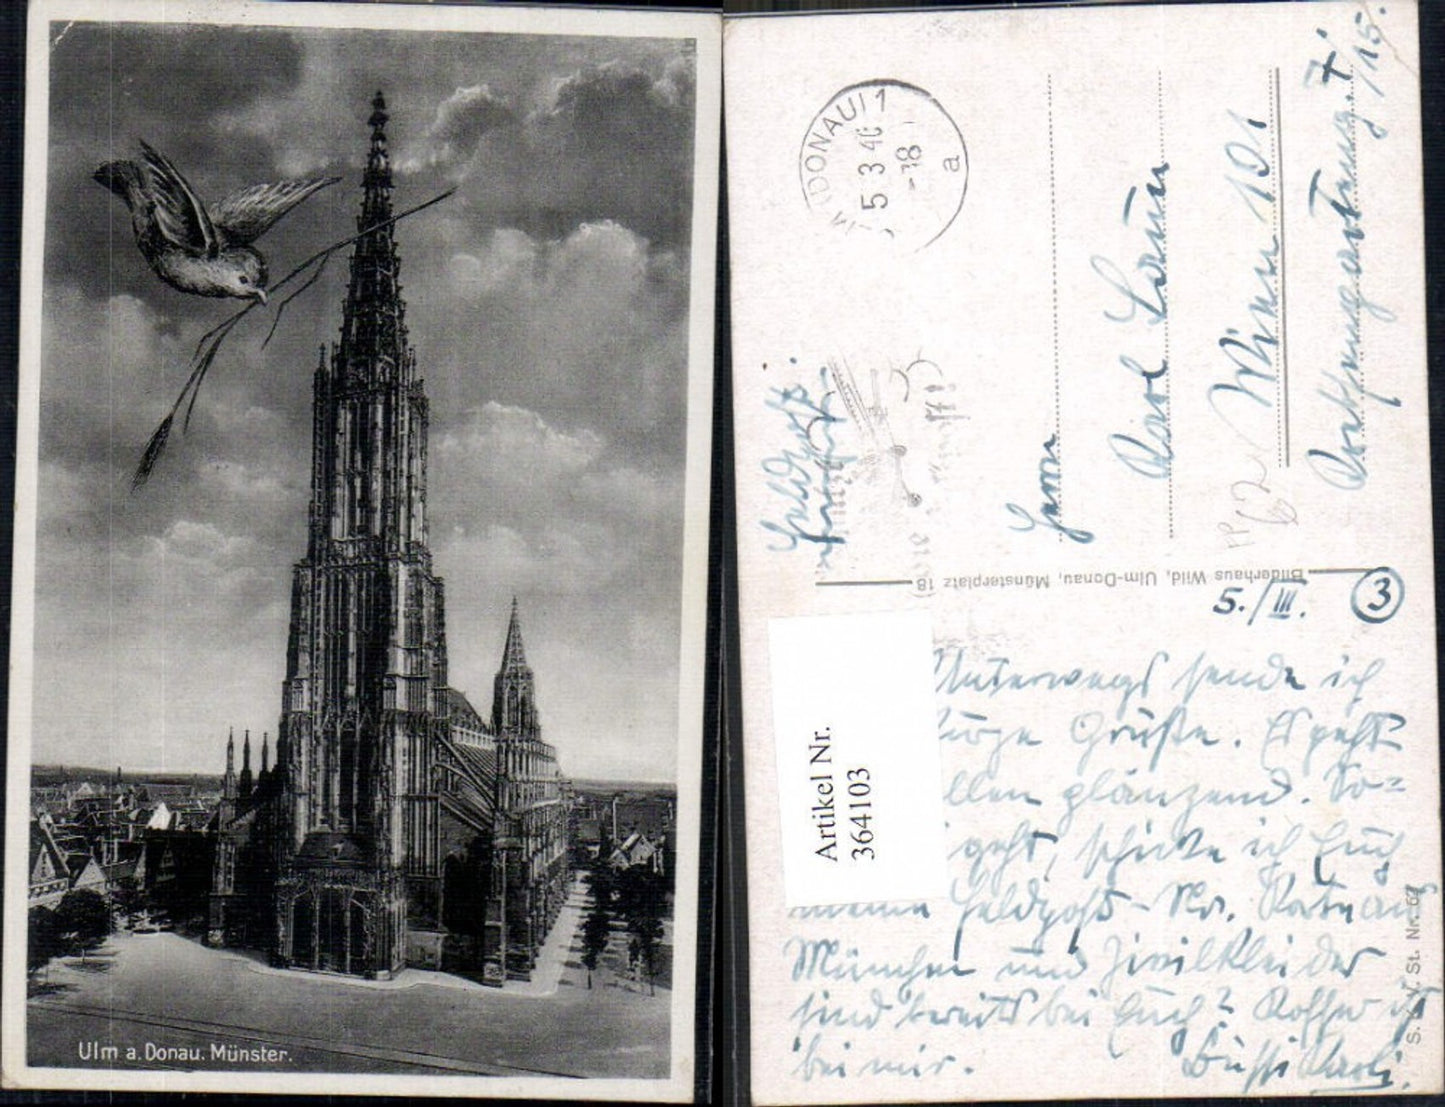 Ulm a. Donau. Münster.
(DONAU) 1
5 3 40
-18
a
Feldpost.
Herrn
Karl
Wien 101
5./III.
3
Bilderhaus Wild, Ulm-Donau, Münsterplatz 18
Artikel Nr.
364103
Unterwegs sende ich
Grüße. Es geht
glänzend. So=
geht, schicke ich Euch
meine Feldpost-Nr.
München und Zivilkleider
sind bereits bei Euch? Koffer ist
bei mir. Bussi Karli.